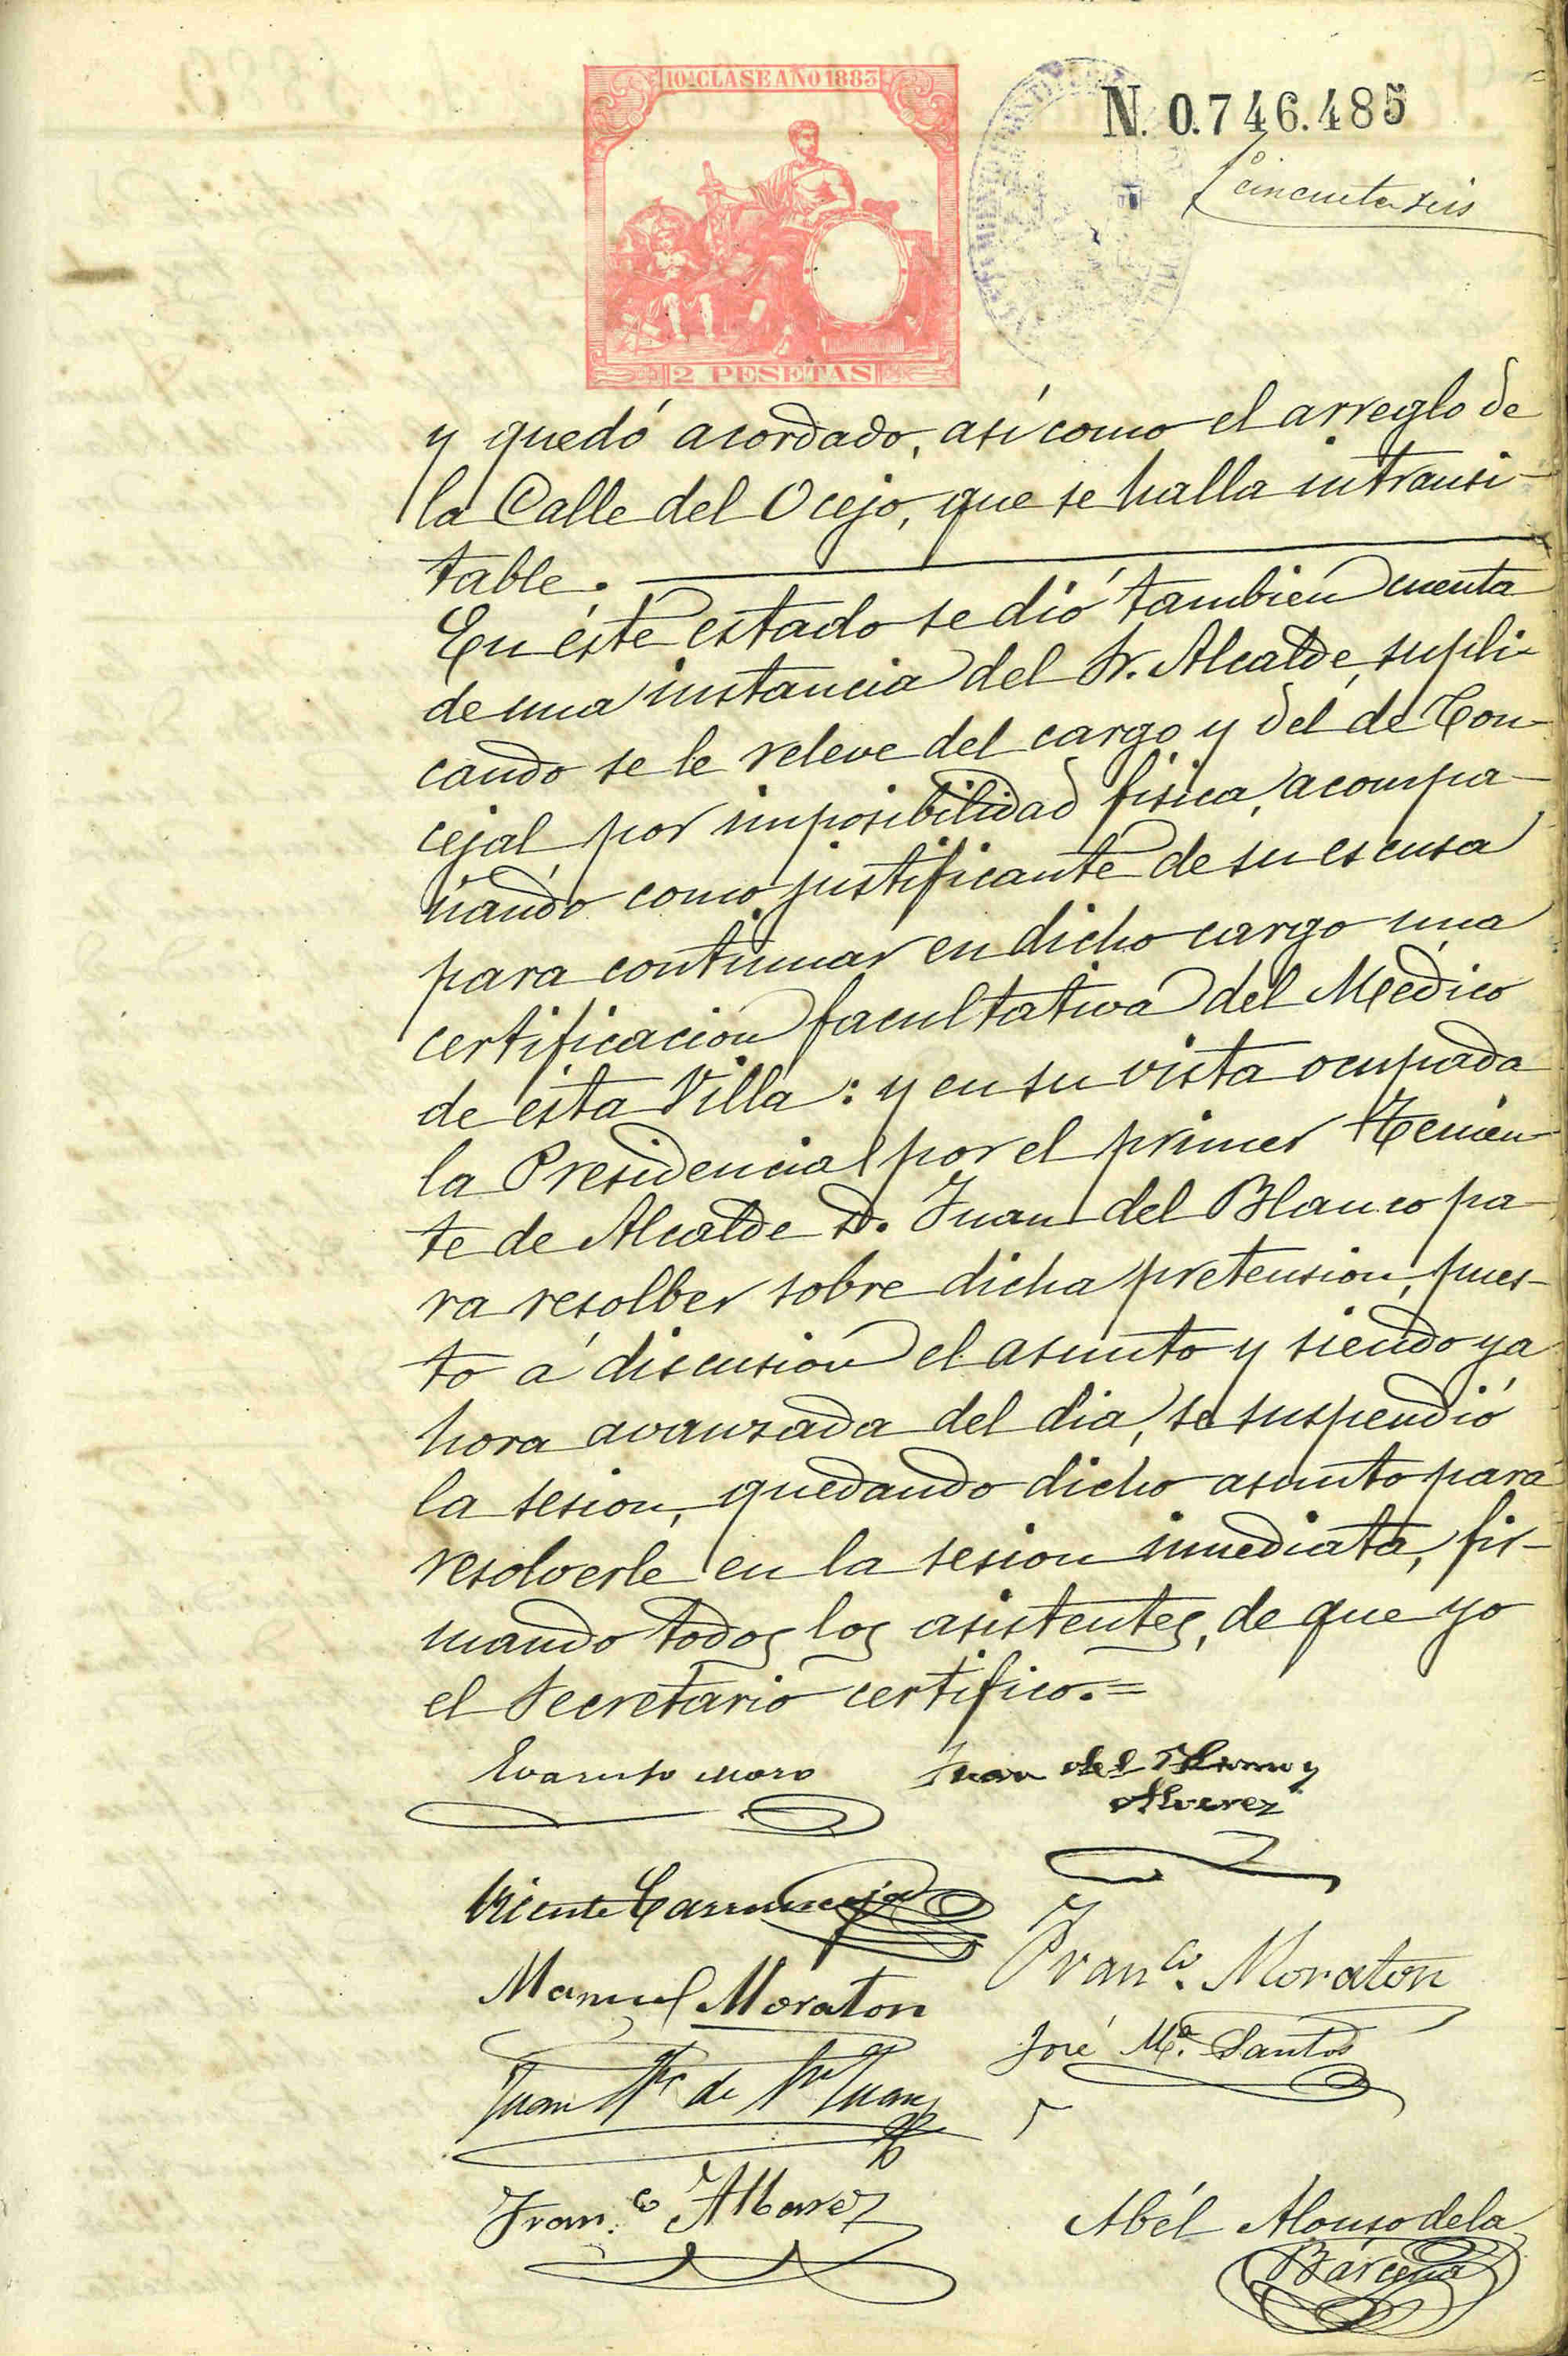 10ª CLASE AÑO 1883
N. 0.746.485
Cincuenta y seis
2 PESETAS
y quedó acordado, así como el arreglo de
la Calle del Ocejo, que se halla intransi-
table.
En éste estado se dió tambien cuenta
de una instancia del Sr. Alcalde, supli-
cando se le releve del cargo y del de Con-
cejal por imposibilidad fisica, acompa-
ñando como justificante de su escusa
para continuar en dicho cargo una
certificacion facultativa del Médico
de ésta Villa: y en su vista ocupada
la Presidencia por el primer Tenien-
te de Alcalde D. Juan del Blanco pa-
ra resolber sobre dicha pretension, pues-
to á discusion el asunto y siendo ya
hora avanzada del dia, se suspendió
la sesion, quedando dicho asunto para
resolverle en la sesion inmediata, fir-
mando todos los asistentes, de que yo
el Secretario certifico.=
Evaristo Moro
Juan del Blanco y
Alvarez
Vicente
Franco. Moraton
Manuel Moraton
José Mª. Santos
Juan de Juan
Franco. Albarez
Abél Alonso de la
Bárcena